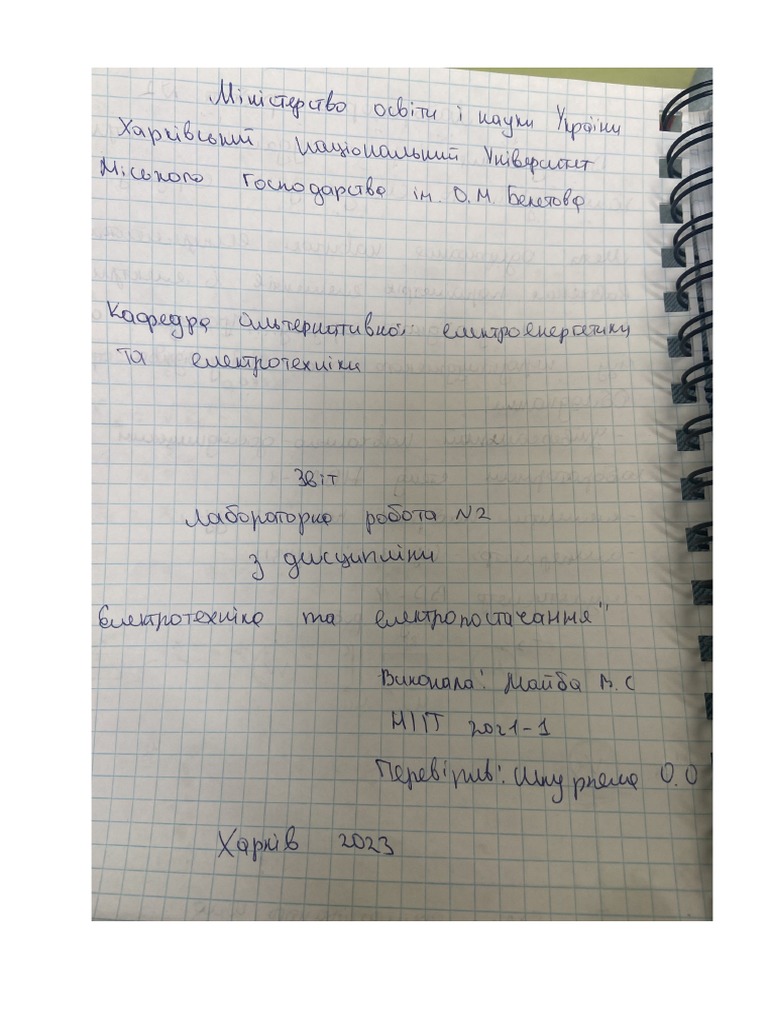 Міністерство освіти і науки України
Харківський національний Університет
Міського Господарства ім. О.М. Бекетова
Кафедра альтернативної електроенергетики
та електротехніки
Звіт
Лабораторна робота №2
з дисципліни
Електротехніка та електропостачання"
Виконала: Майба В.С
2021-1
Перевірив: О.О
Харків 2023